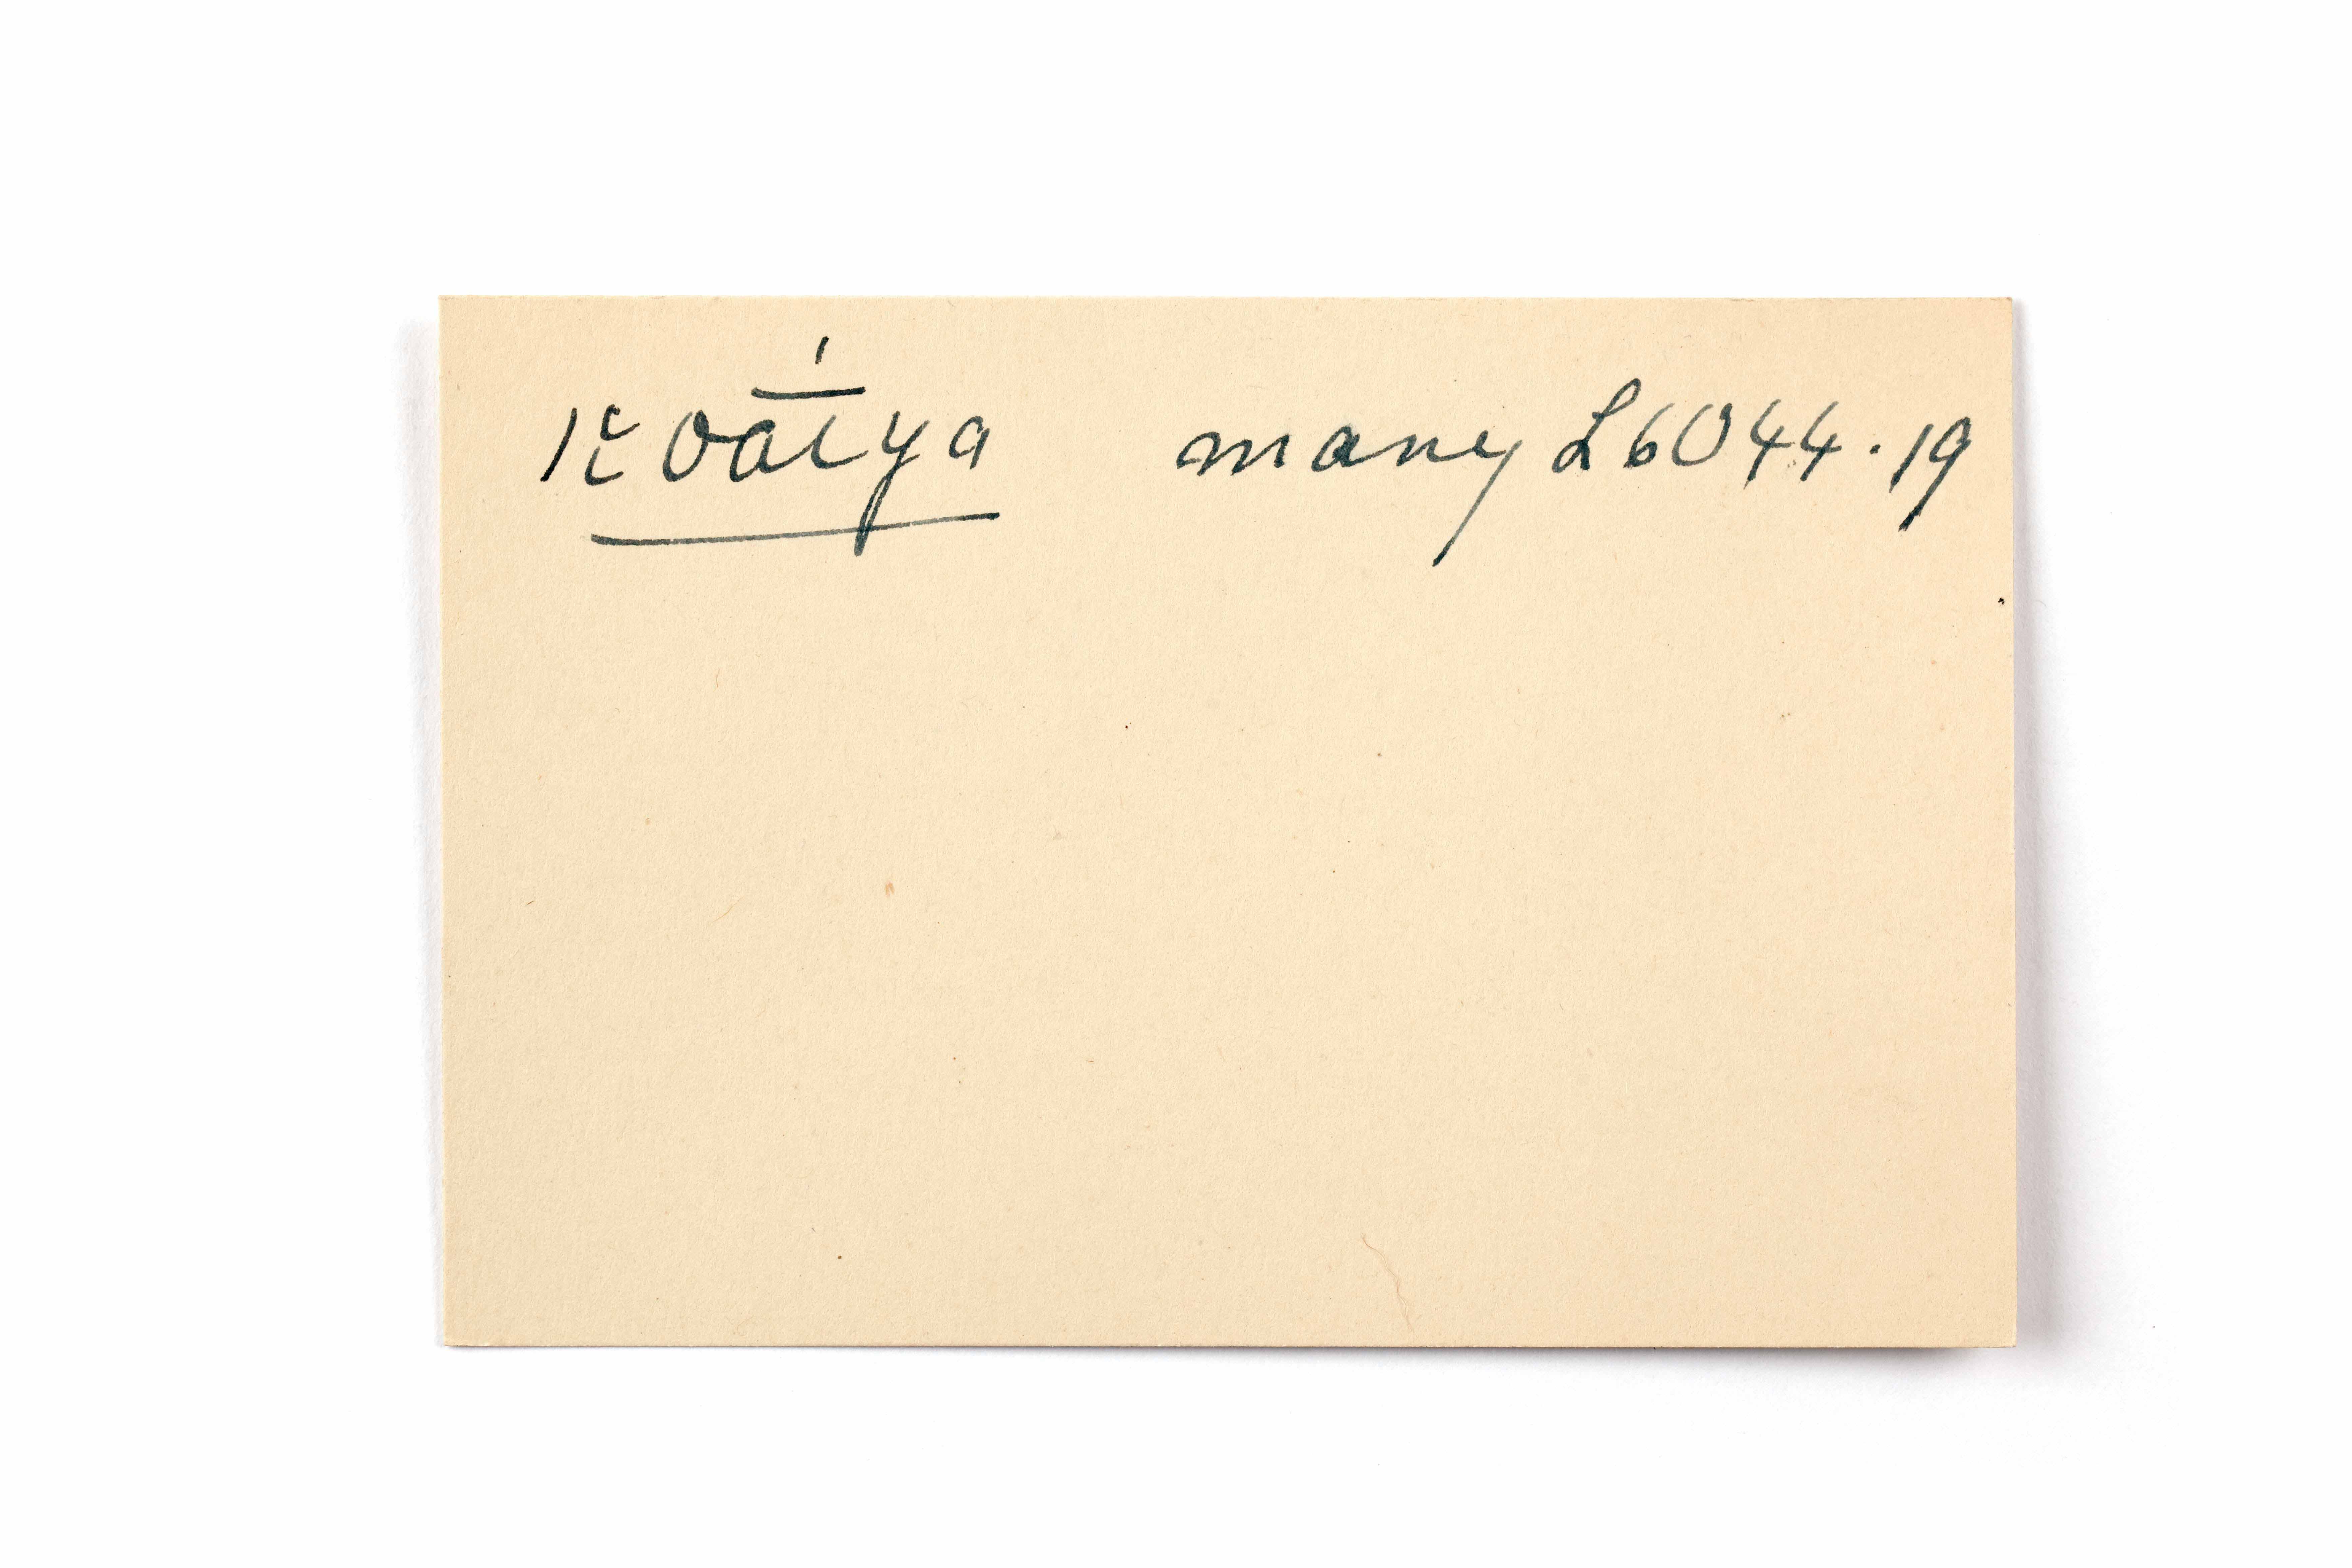 koā́iya many L6044.19